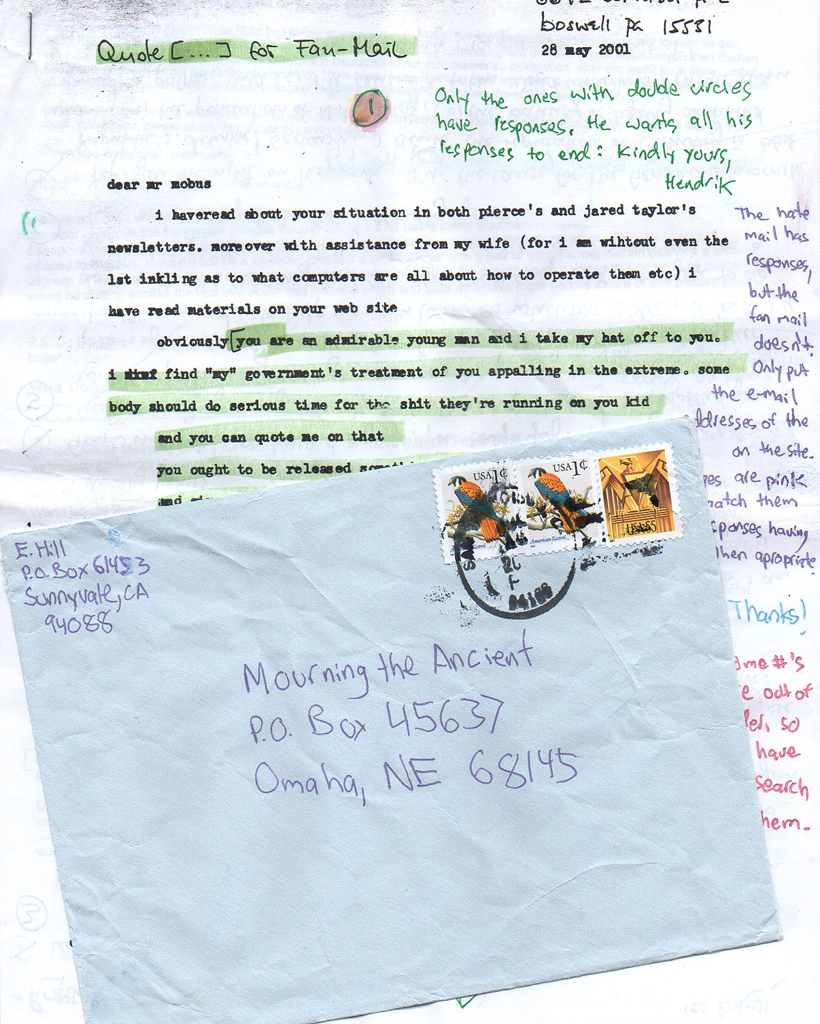 boswell pa 15531
28 may 2001
Quote [...] for Fan-Mail
1
Only the ones with double circles
have responses. He wants all his
responses to end: Kindly yours,
Hendrik
dear mr mobus
i haveread about your situation in both pierce's and jared taylor's
newsletters. moreover with assistance from my wife (for i am wihtout even the
1st inkling as to what computers are all about how to operate them etc) i
have read materials on your web site
obviously [you are an admirable young man and i take my hat off to you.
i find "my" government's treatment of you appalling in the extreme. some
body should do serious time for the shit they're running on you kid
and you can quote me on that
you ought to be released
and
The hate
mail has
responses,
but the
fan mail
doesn't.
Only put
the e-mail
addresses of the
on the site.
are pink
match them
responses having
when apropriate
Thanks!
#'s
out of
so
have
search
them.
USA 1¢
USA 1¢
American Kestrel
USA
94188
E. Hill
P.O. Box 61453
Sunnyvale, CA
94088
Mourning the Ancient
P.O. Box 45637
Omaha, NE 68145